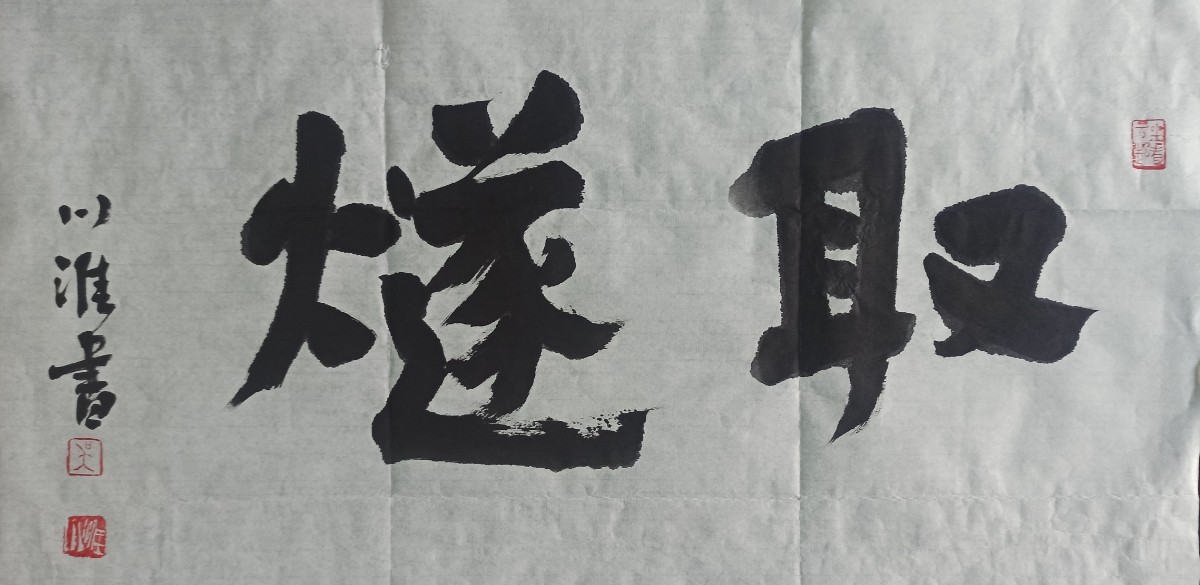 取燧
川淮書